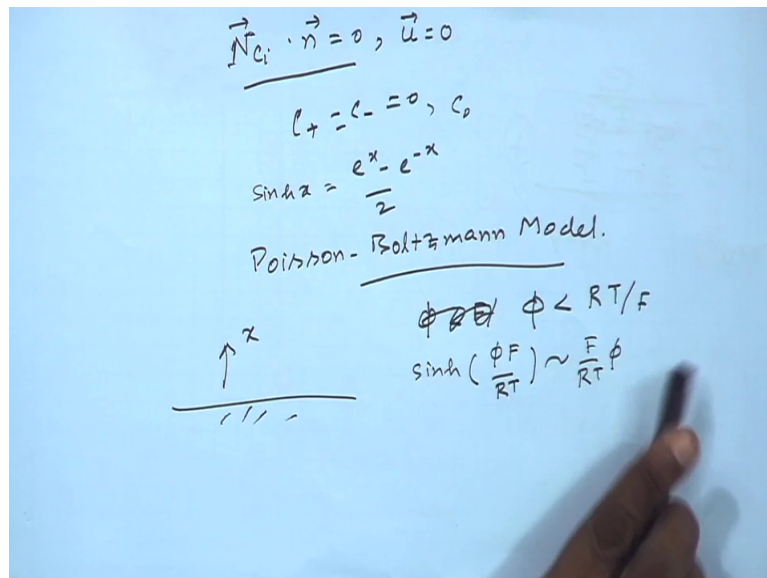 N⃗ci · n⃗ = 0, u⃗ = 0
C+ = C- = 0, C0
sinh x = (e^x - e^-x)/2
Poisson-Boltzmann Model.
ϕ < RT/F
x
sinh(ϕF/RT) ~ F/RT ϕ